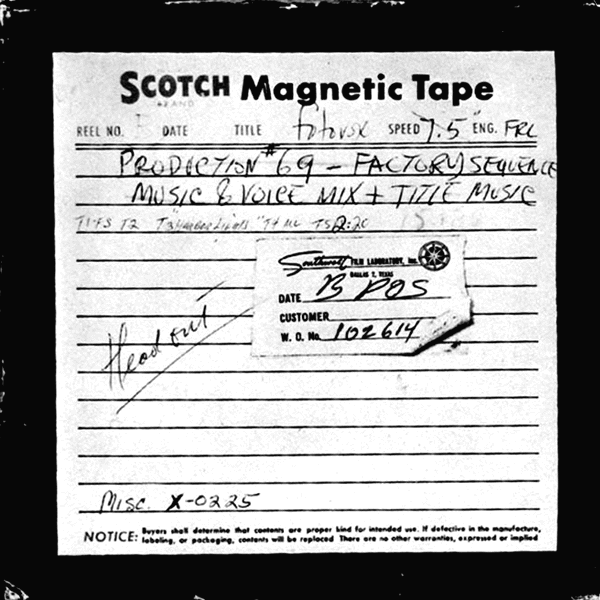 SCOTCH Magnetic Tape
BRAND
REEL NO. DATE TITLE SPEED 7.5" ENG. FRL
PRODUCTION #69 - FACTORY SEQUENCE
MUSIC & VOICE MIX + TITLE MUSIC
T2 2:20
Southwest FILM LABORATORY, Inc.
DALLAS 2, TEXAS
DATE B POS
CUSTOMER
W. O. No. 102614
Head out
Misc. X-0225
NOTICE: Buyers shall determine that contents are proper kind for intended use. If defective in the manufacture,
labeling, or packaging, contents will be replaced There are no other warranties, expressed or implied